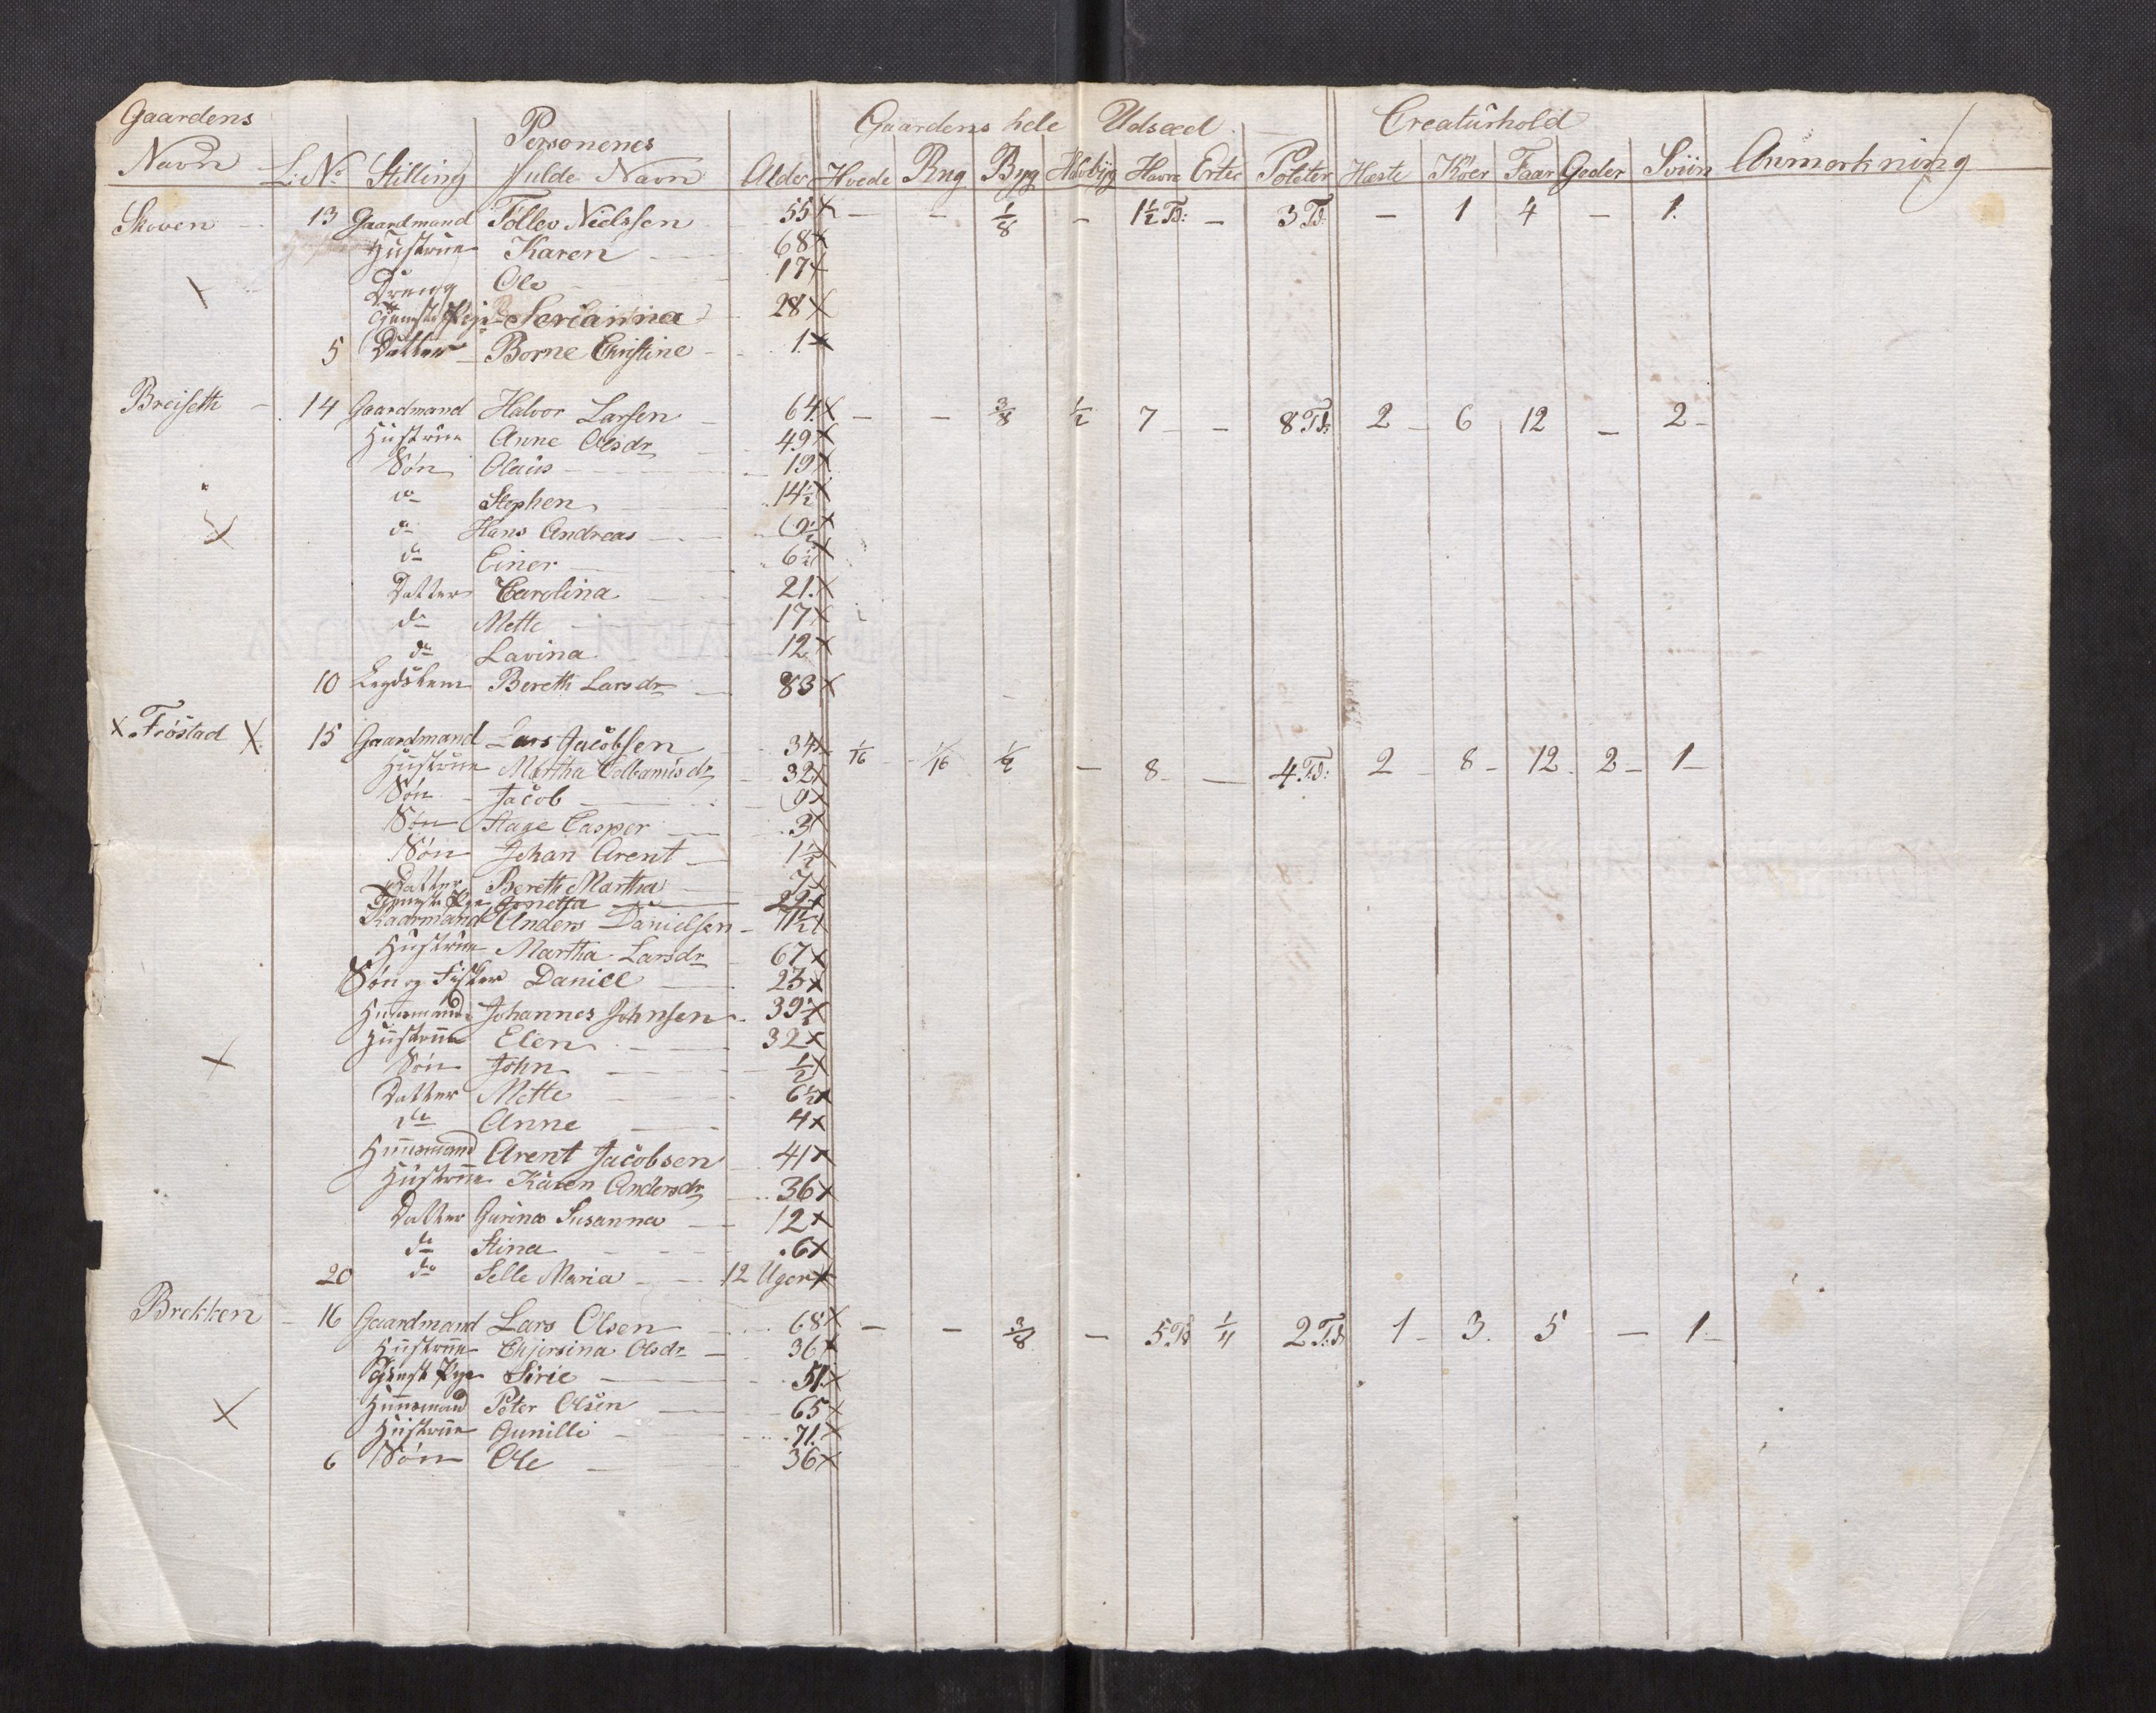 Gaardens Navn L: No Stilling Personenes fulde Navn Alder Gaardens hele Udsæd Creaturhold Anmærkning
Hvede Rug Byg Havbyg Havre Erter Poteter Heste Köer Faar Geder Sviin
Skoven 13 Gaardmand Tollev Nielssen 55 x — — 1/8 — 1 1/2 Td: — 3 Td: — 1 4 — 1.
Hustrue Karen 68 x
Dreng Ole 17 x
Tjeneste Pige Serianna 28 x
5 Datter Borne Christine 1. x
Breiseth 14 Gaardmand Halvor Larsen 64 x — — 3/8 1/2 7 — 8 Td: 2 6 12 — 2
Hustrue Anne Olsdr 49 x
Sön Olaus 19 x
do Stephen 14 1/2 x
do Hans Andreas 9 1/2 x
do Einer 6 1/2 x
Datter Carolina 21. x
do Mette 17 x
do Lavina 12 x
10 Legdslem Bereth Larsdr 83 x
x Fröstad x 15 Gaardmand Lars Jacobsen 34 x 1/16 1/16 1/2 — 8 — 4 Td: 2 8 12 2 1
Hustrue Martha 32 x
Sön Jacob 9 x
Sön Hage Casper 3 x
Sön Johan Arent 1 1/2
Datter Bereth Martha 7 x
29 x
Kaarmand Anders Danielsen 71 1/2
Hustrue Martha Larsdr 67 x
Sön og Fisker Daniel 23 x
Huusmand Johannes Johnsen 39 1/2 x
Hustrue Elen 32 x
Sön John 1/2 x
Datter Mette 6 1/2 x
do Anne 4 x
Huusmand Arent Jacobsen 41 x
Hustrue Karen Andersdr 36 x
Datter Gurina Susanna 12 x
do Stina 6 x
20 do Selle Maria 12 Uger x
Brekken 16 Gaardmand Lars Olsen 68 x — — 3/8 — 5 Td 1/4 2 Td: 1 3. 5 — 1
Hustrue Olsdr 36 x
Tjenest Pige Sirie 51. x
Huusmand Peter Olsen 65 x
Hustrue Gunille 71. x
6 Sön Ole 36 x